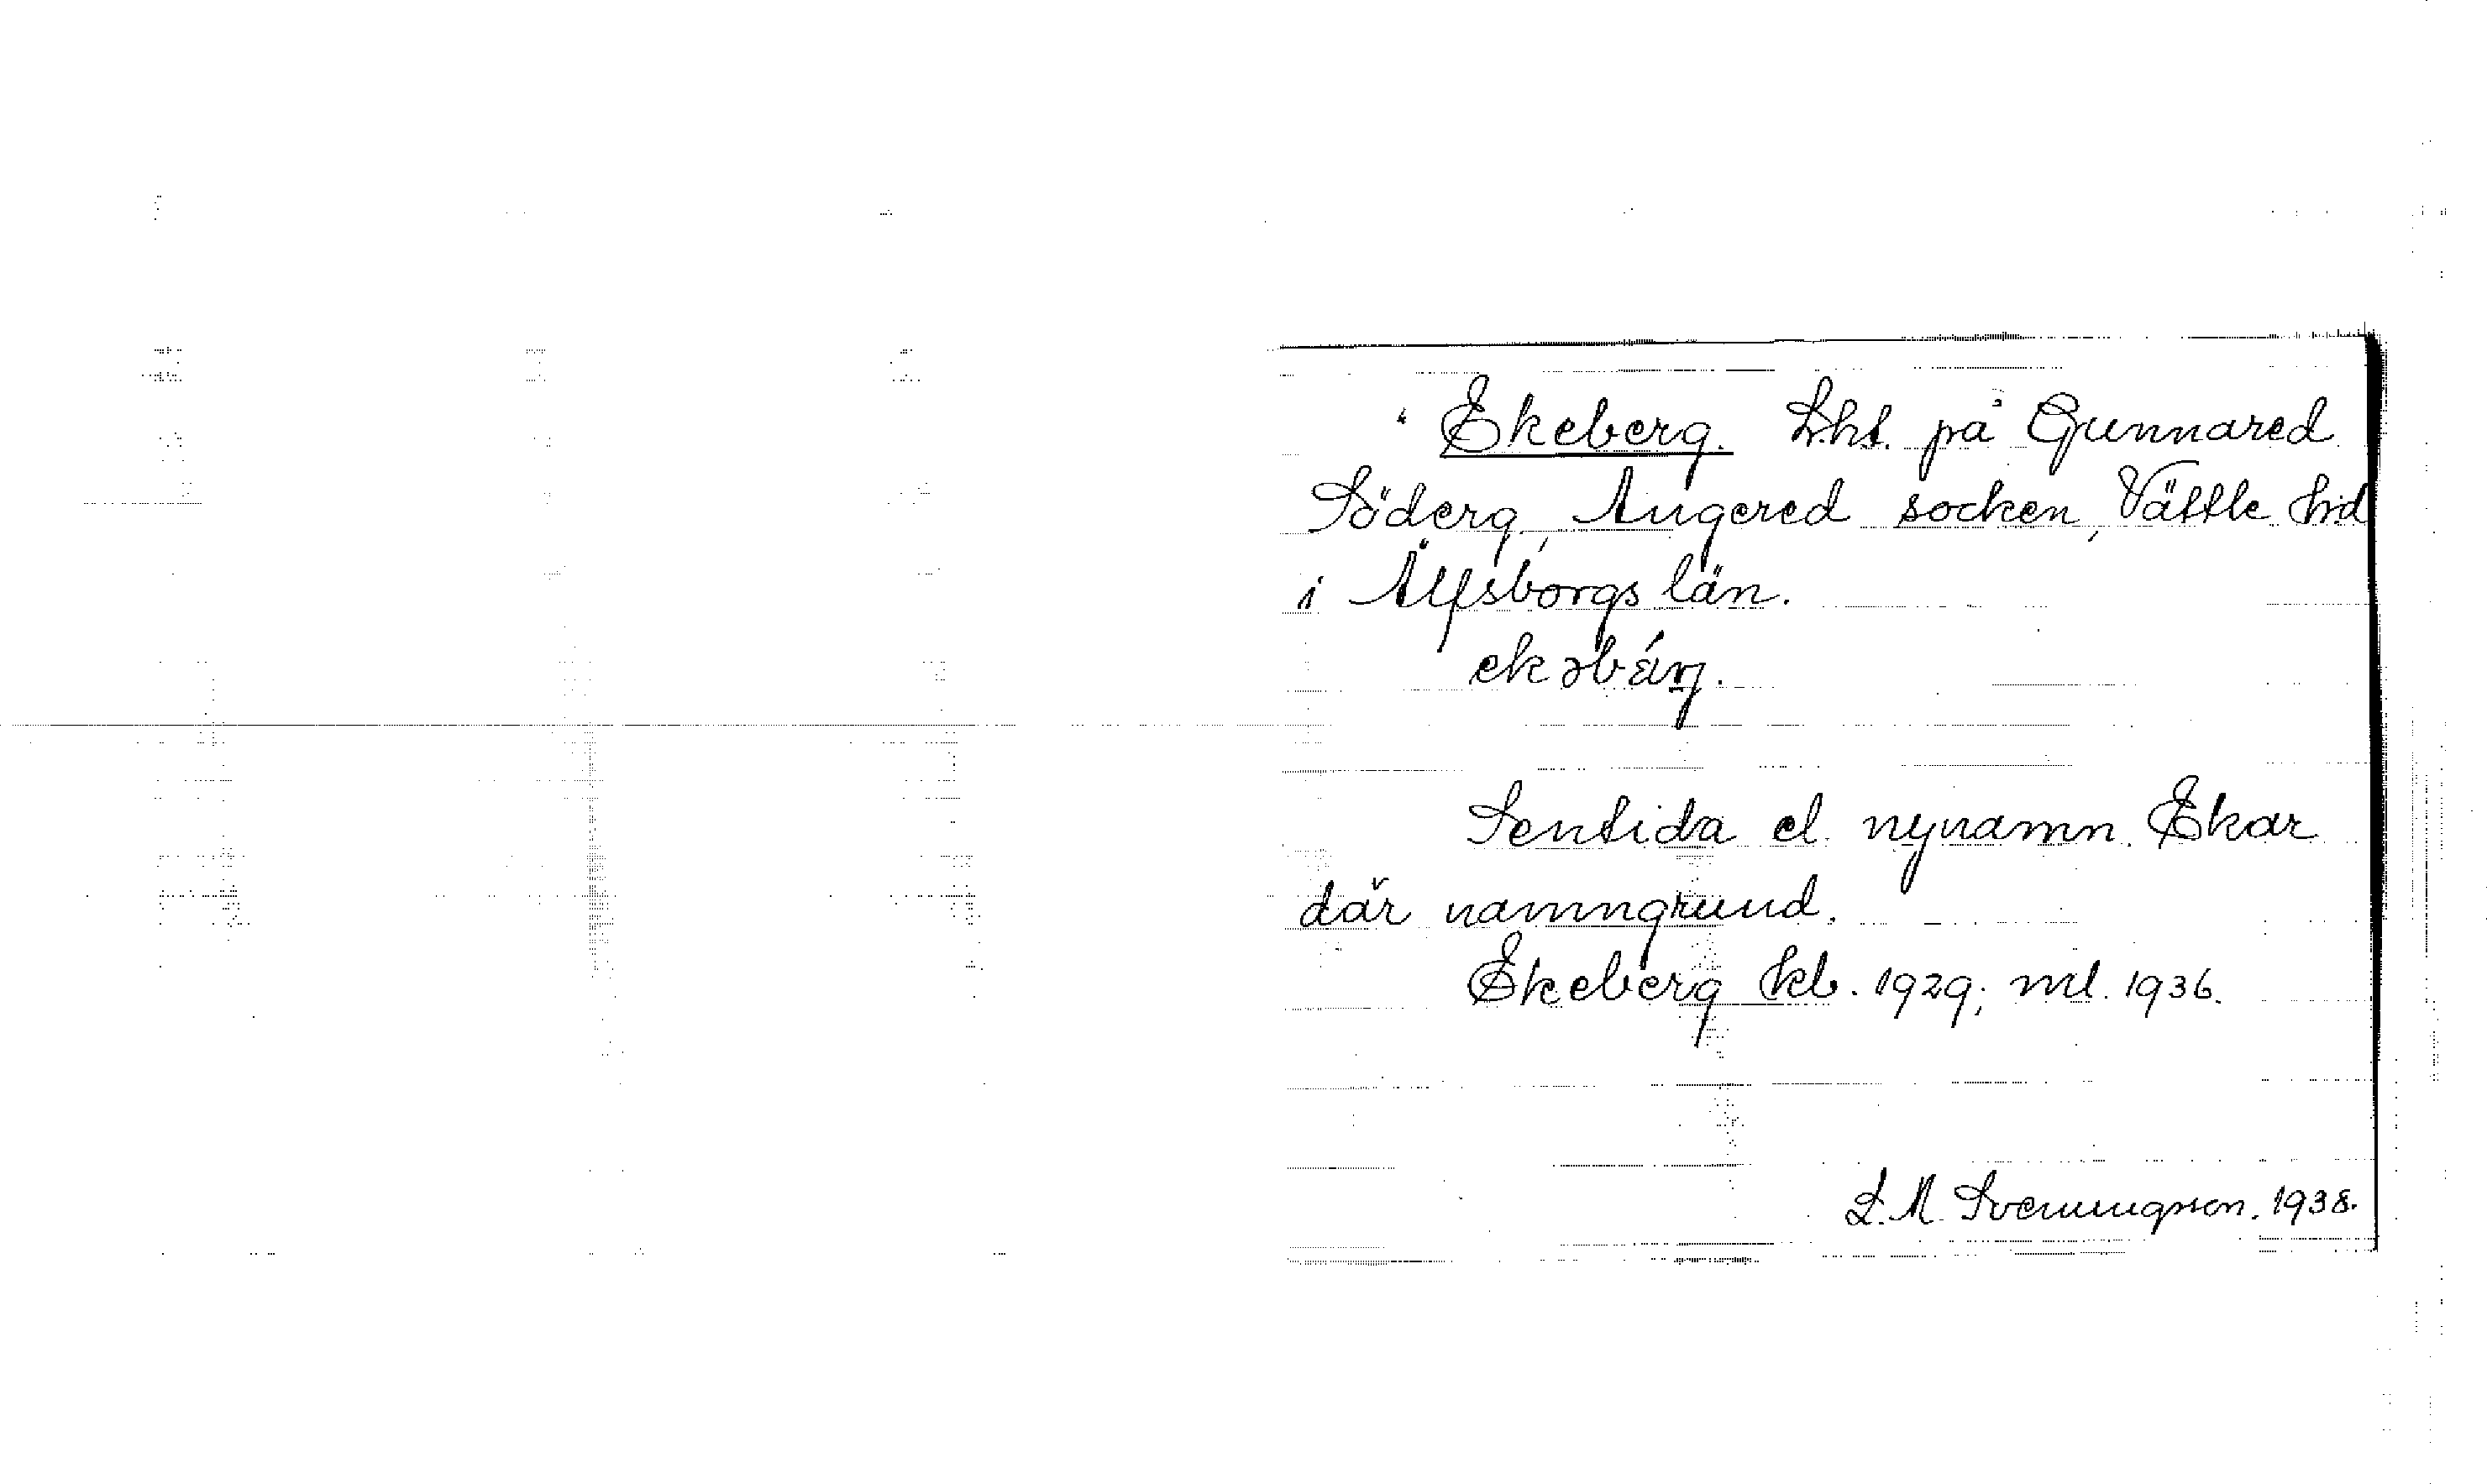 Ekeberg. Lht. på Gunnared
Söderg, Angered socken, Vättle hd
i Älfsborgs län.
ekəbárj.
Sentida el. nynamn. Ekar
där namngrund.
Ekeberg kb. 1929; ml. 1936.
L. M. Svenungson. 1938.